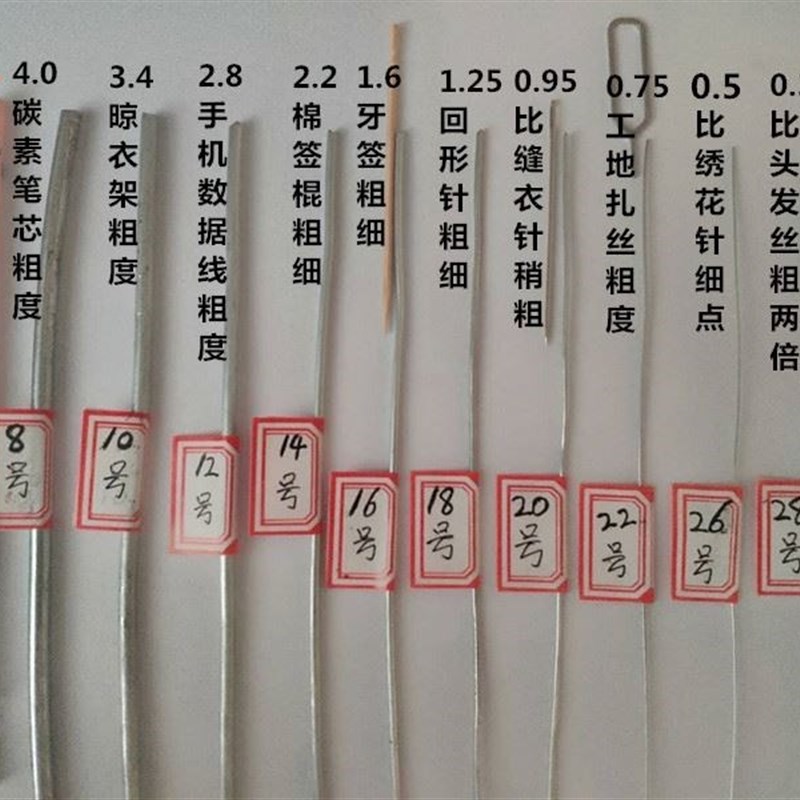 4.0
碳素笔芯粗度
3.4
晾衣架粗度
2.8
手机数据线粗度
2.2
棉签棍粗细
1.6
牙签粗细
1.25
回形针粗细
0.95
比缝衣针稍粗
0.75
工地扎丝粗度
0.5
比绣花针细点
0.
比头发丝粗两倍
8
号
10
号
12
号
14
号
16
号
18
号
20
号
22
号
26
号
28
号